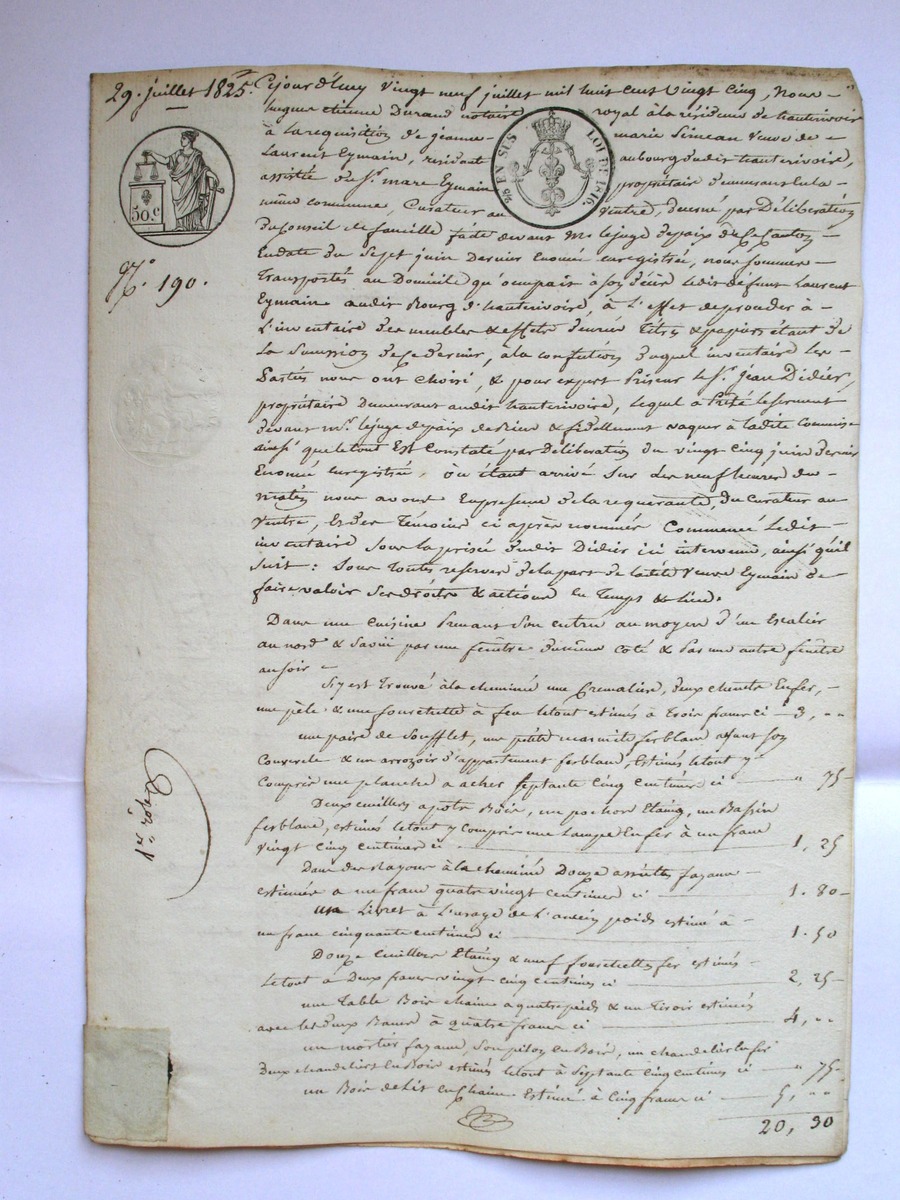 29. juillet 1825. Cejourd'huy vingt neuf juillet mil huit cent vingt cinq, Nous
hugues etienne Durand notaire royal à la résidence de hauterivoire
à la requisition de jeanne marie Simean veuve de
Laurent Eymain, residant au bourg dudit hauterivoire,
assistée de Sr. marc Eymain propriétaire demeurant en la
même commune, Curateur au ventre, nommé par Délibération
du Conseil de famille faite devant Mr le juge de paix de ce Canton
En date du Sept juin Dernier Enonce enregistré, nous sommes
Transportés au Domicile qu'occupait à son décès ledit défunt Laurent
Eymain audit Bourg d'hauterivoire, à L'effet de proceder à
L'inventaire des meubles & effets denrées Titres & papiers étant de
La Succession de ce dernier, à la confection duquel inventaire les
Parties nous ont choisi, & pour expert Priseur le Sr. Jean Didier,
propriétaire demeurant audit hauterivoire, lequel a Prêté le serment
devant Mr. le juge de paix de bien & fidellement vaquer à ladite commission
ainsi que le tout Est Constaté par Délibération du vingt cinq juin dernier
Enoncé enregistré, où étant arrivé Sur les neuf heures du
matin nous avons En presence de la requérante, du curateur au
ventre, & des Temoins ci après nommés Commencé Ledit
inventaire Sous la prisée dudit Didier ici intervenu, ainsi qu'il
Suit: Sous Toutes reserves de la part de ladite veuve Eymain de
faire valoir Ses droits & actions En Temps & Lieu.
Dans une cuisine Prenant son entrée au moyen d'un Escalier
au nord & par une fenêtre du même coté & Par une autre fenêtre
au soir
S'y est Trouvé à la cheminée une Cremalière, deux chenets En fer,
une pèle & une fourchette à feu le tout estimés à Trois francs ci 3, ""
une paire de Soufflet, une petite marmite fer blanc ayant son
Couvercle & un arrozoir d'appartement fer blanc, Estimés le tout y
Compris une planche a acher Septante Cinq Centimes ci " 75
Deux cuillers à potr Bois, un pochon Etaing, un Bassin
fer blanc, estimés le tout y compris une Lampe En fer à un franc
vingt cinq centimes ci 1, 25
Dans des rayons à la cheminée Douze assiettes fayance
estimées a un franc quatre vingt centimes ci 1. 80
un Livret à L'usage de L'ancien poids estimé à
un franc cinquante centimes ci 1. 50
Douze Cuillers Etaing & neuf fourchettes fer estimés
Le tout à Deux francs vingt cinq centimes ci 2, 25
une Table Bois chaine a quatre pieds & un Tiroir estimés
avec les deux Bancs à quatre francs ci 4, ""
un mortier fayance, son piton en Bois, un chandelier En fer
Deux chandeliers en Bois estimés le tout à Septante Cinq Centimes ci " 75
un Bois de Lit en Chaine Estimé à Cinq francs ci 5, ""
20, 30
50.c
25 EN SUS LOI DE 1816.
No. 190.